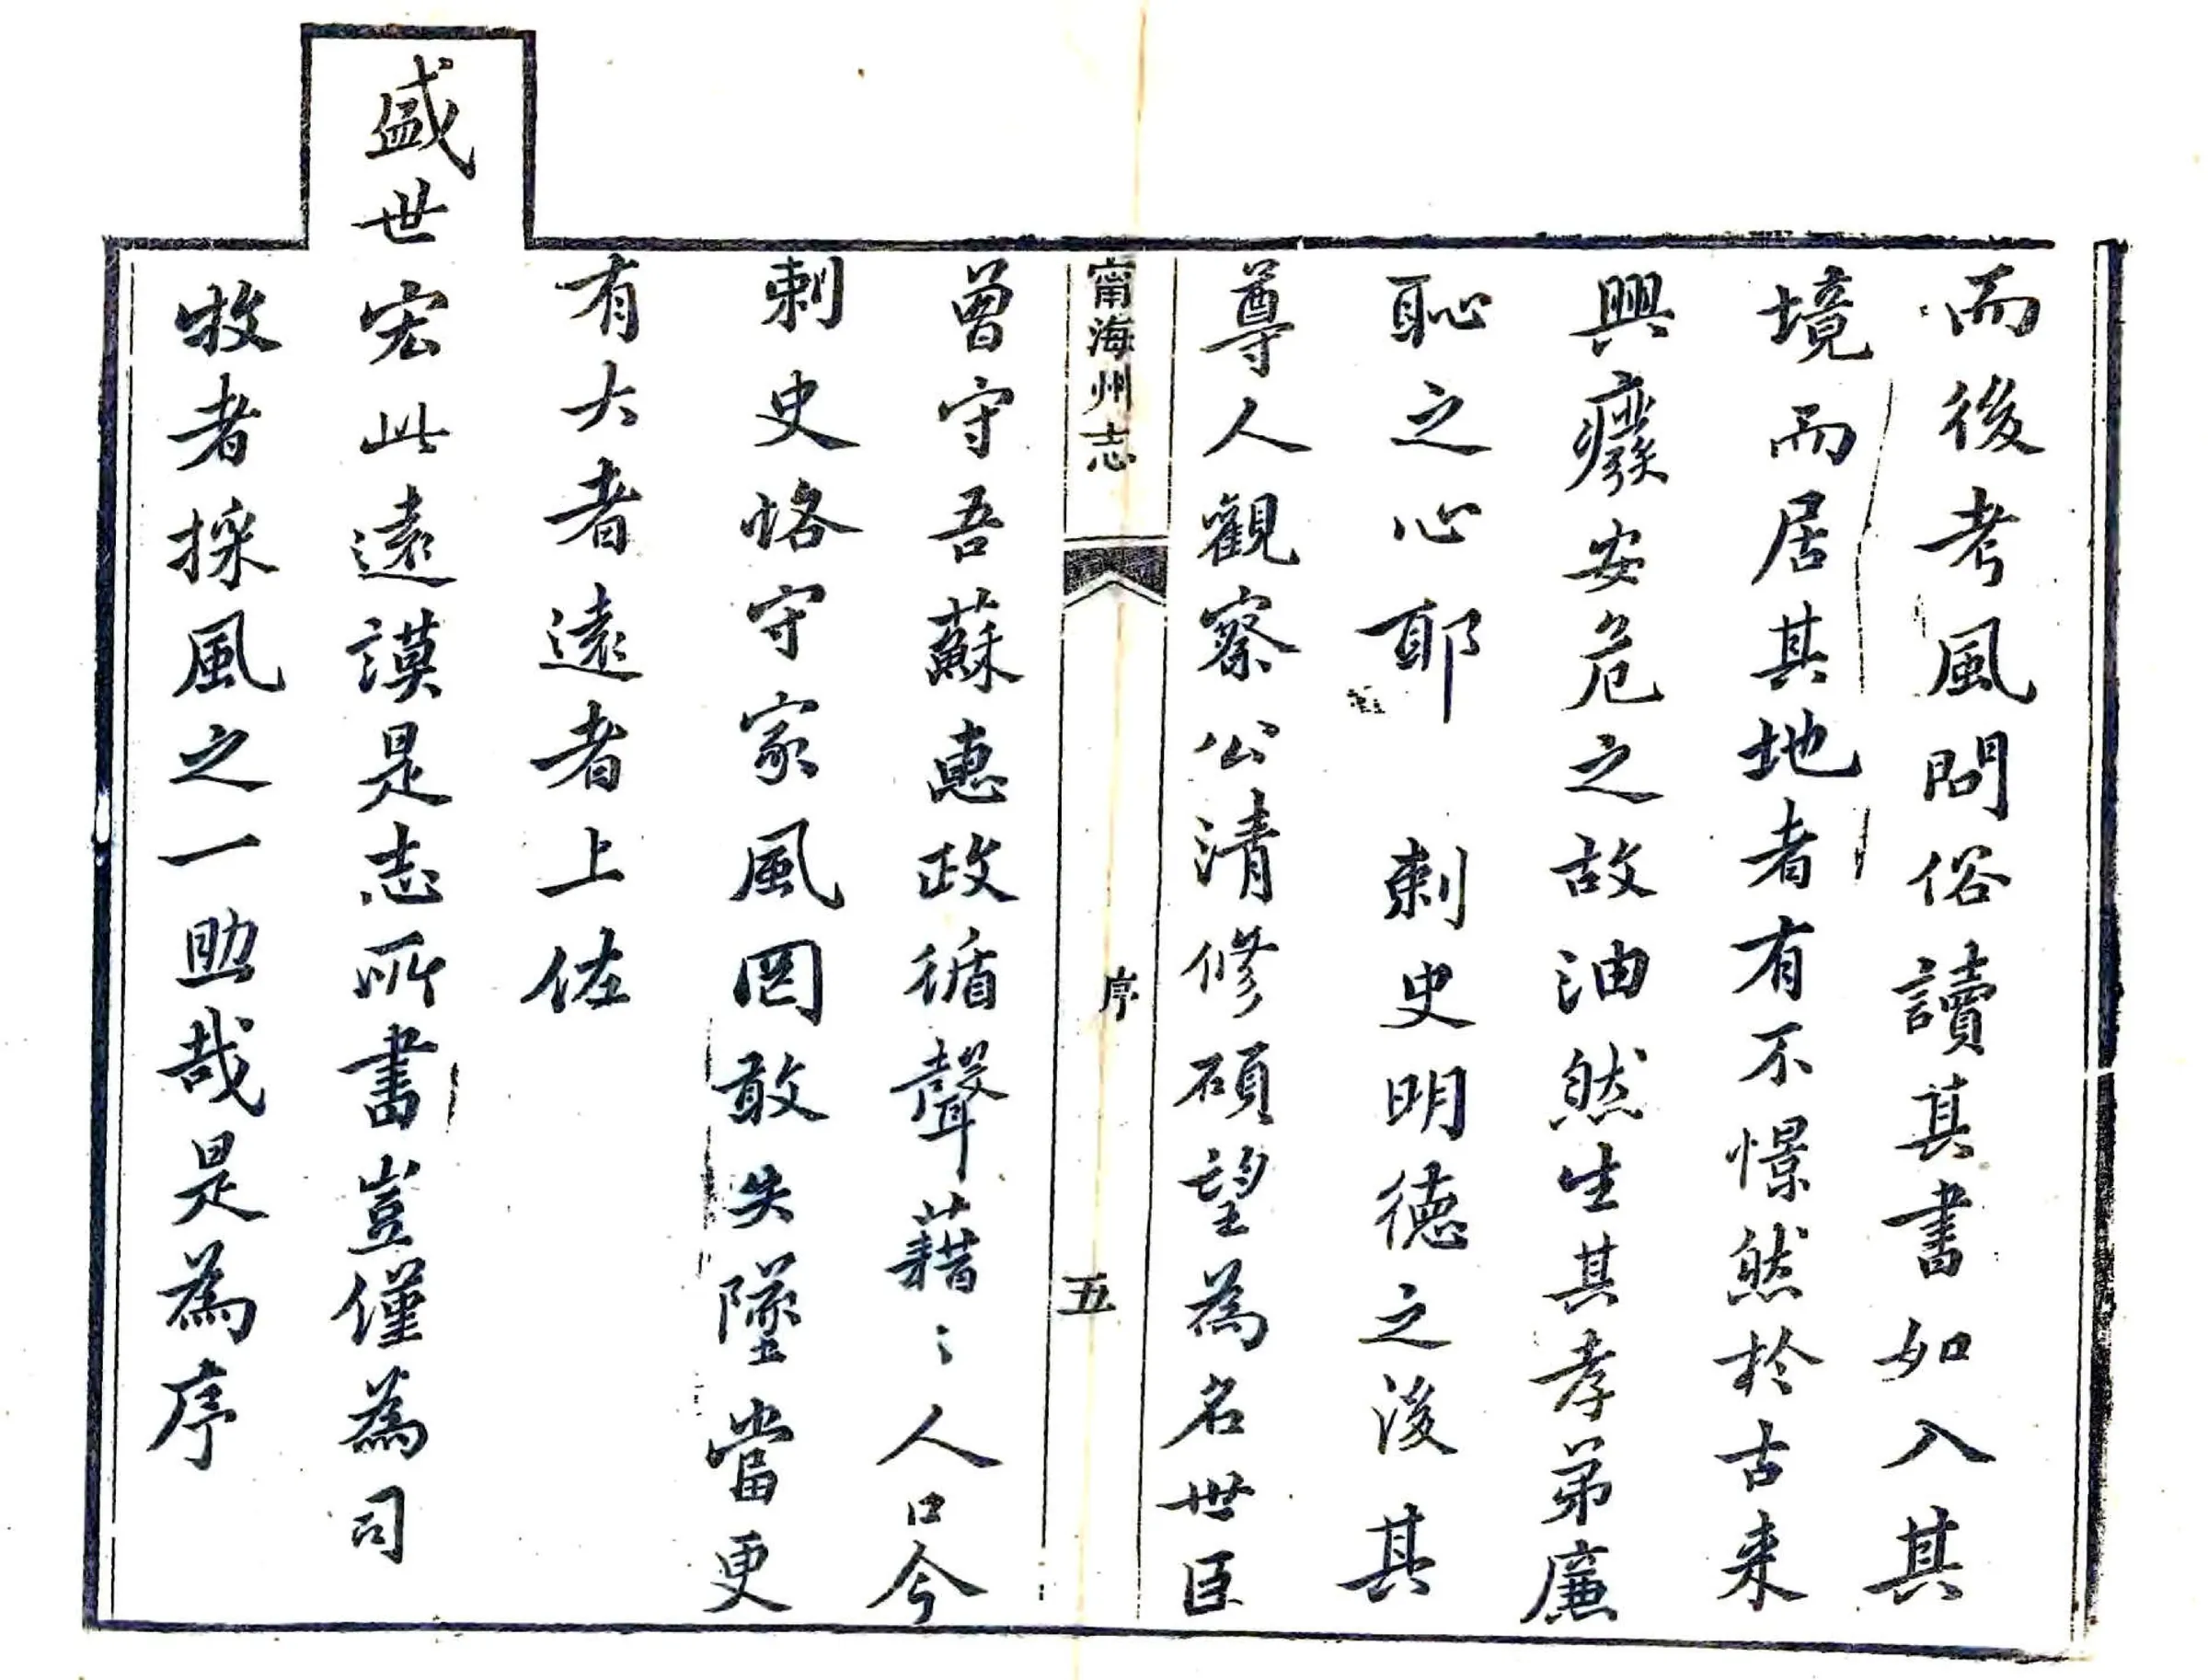 而後考風問俗讀其書如入其
境而居其地者有不憬然於古来
興癈安危之故油然生其孝弟廉
恥之心耶 刺史明德之後其
尊人觀察公清修碩望為名世臣
甯海州志 序 五
曾守吾蘇惠政循聲藉〻人口今
刺史恪守家風罔敢失墜當更
有大者遠者上佐
盛世宏此遠謨是志所書豈僅為司
牧者採風之一助哉是為序